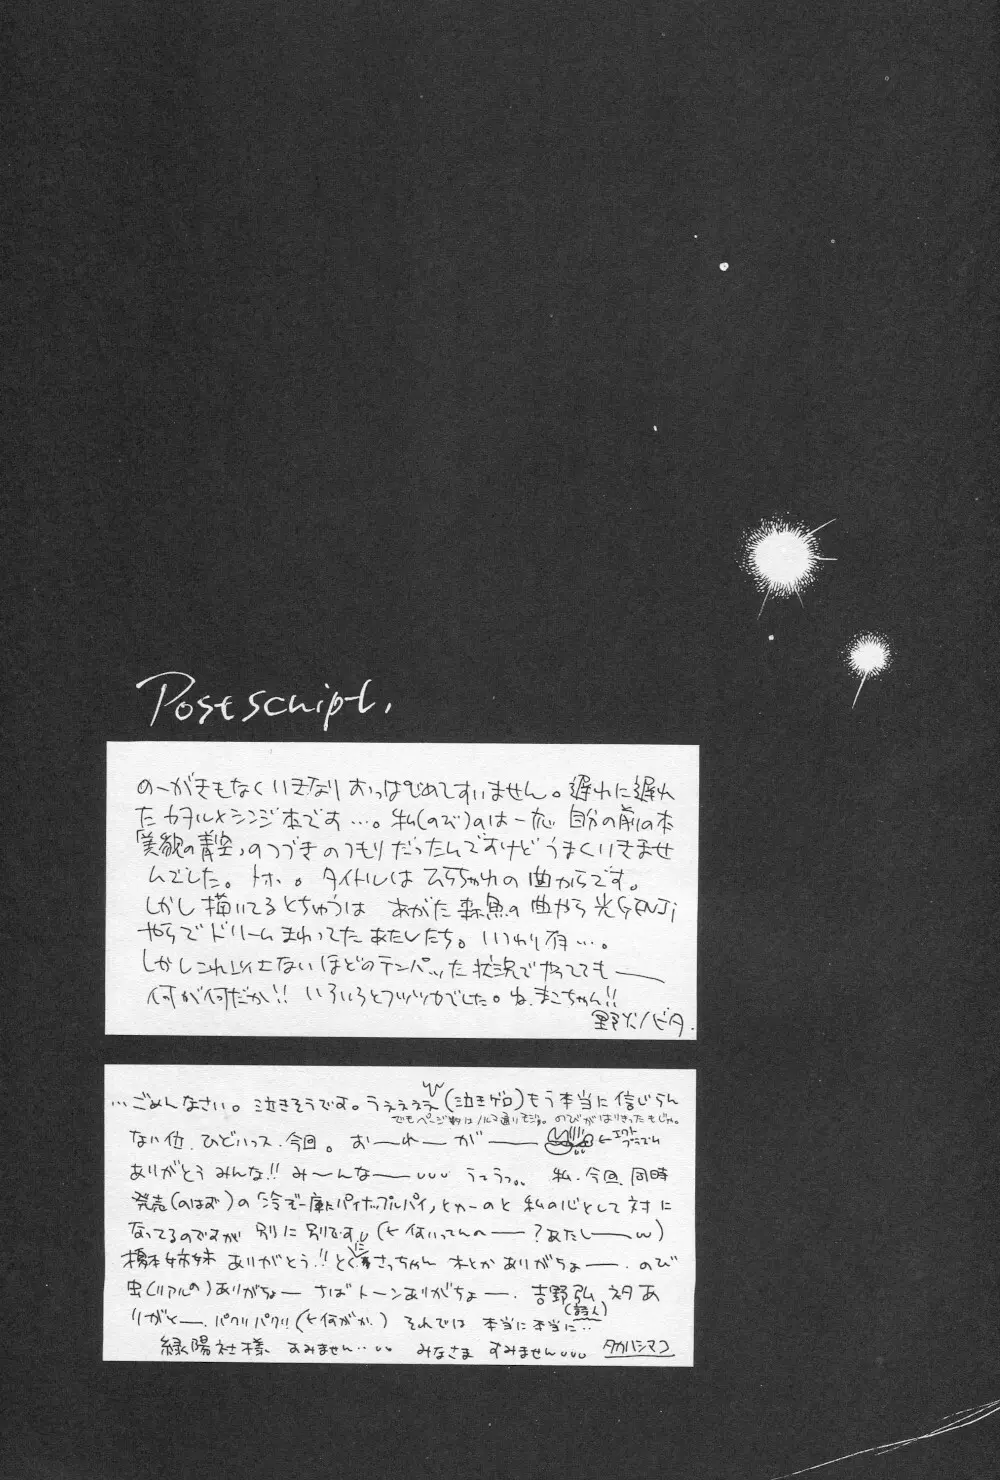 Postscript.
のーがきもなくいきなりおっぱじめてすいません。遅れに遅れ
たカヲル×シンジ本です…。私(のび)のは一応 自分の前の本
「美貌の青空」のつづきのつもりだったんですけど うまくいきませ
んでした。トホ。。タイトルは の曲からです。
しかし描いてるとちゅうは あがた森魚の曲やら光GENJI
やらでドリームまわってたあたしたち。いつわり有…。
しかしこれ以上ないほどのテンパった状況でやってても——
何が何だか!! いろいろとフツツカでした。ね、まこちゃん!!
野火ノビタ.
…ごめんなさい。泣きそうです。うええええ(泣きゲロ)もう本当に信じらん
でもページ数はノルマ通りモジョ。のびがはりきったもじゃ。
ない位、ひどいっス、今回。お—れ—が——
ありがとうみんな!! み〜んな—— うっうっ。。 私、今回、同時
発売(のはず)の「冷ぞー庫にパイナップルパイ」とかーのと 私の心として対に
なってるのですが 別に別です。(←何いってんの——?あたし——)
橋本姉妹 ありがとう!! とくに さっちゃん ありがちょー. のび
虫(リアルの)ありがちょー さばトーンありがちょー. 吉野弘 ネタあ
(詩人)
りがとー. パクリパクリ(←何がか.) それでは 本当に本当に‥
緑陽社様 すみません‥ みなさま すみません
タカハシマコ